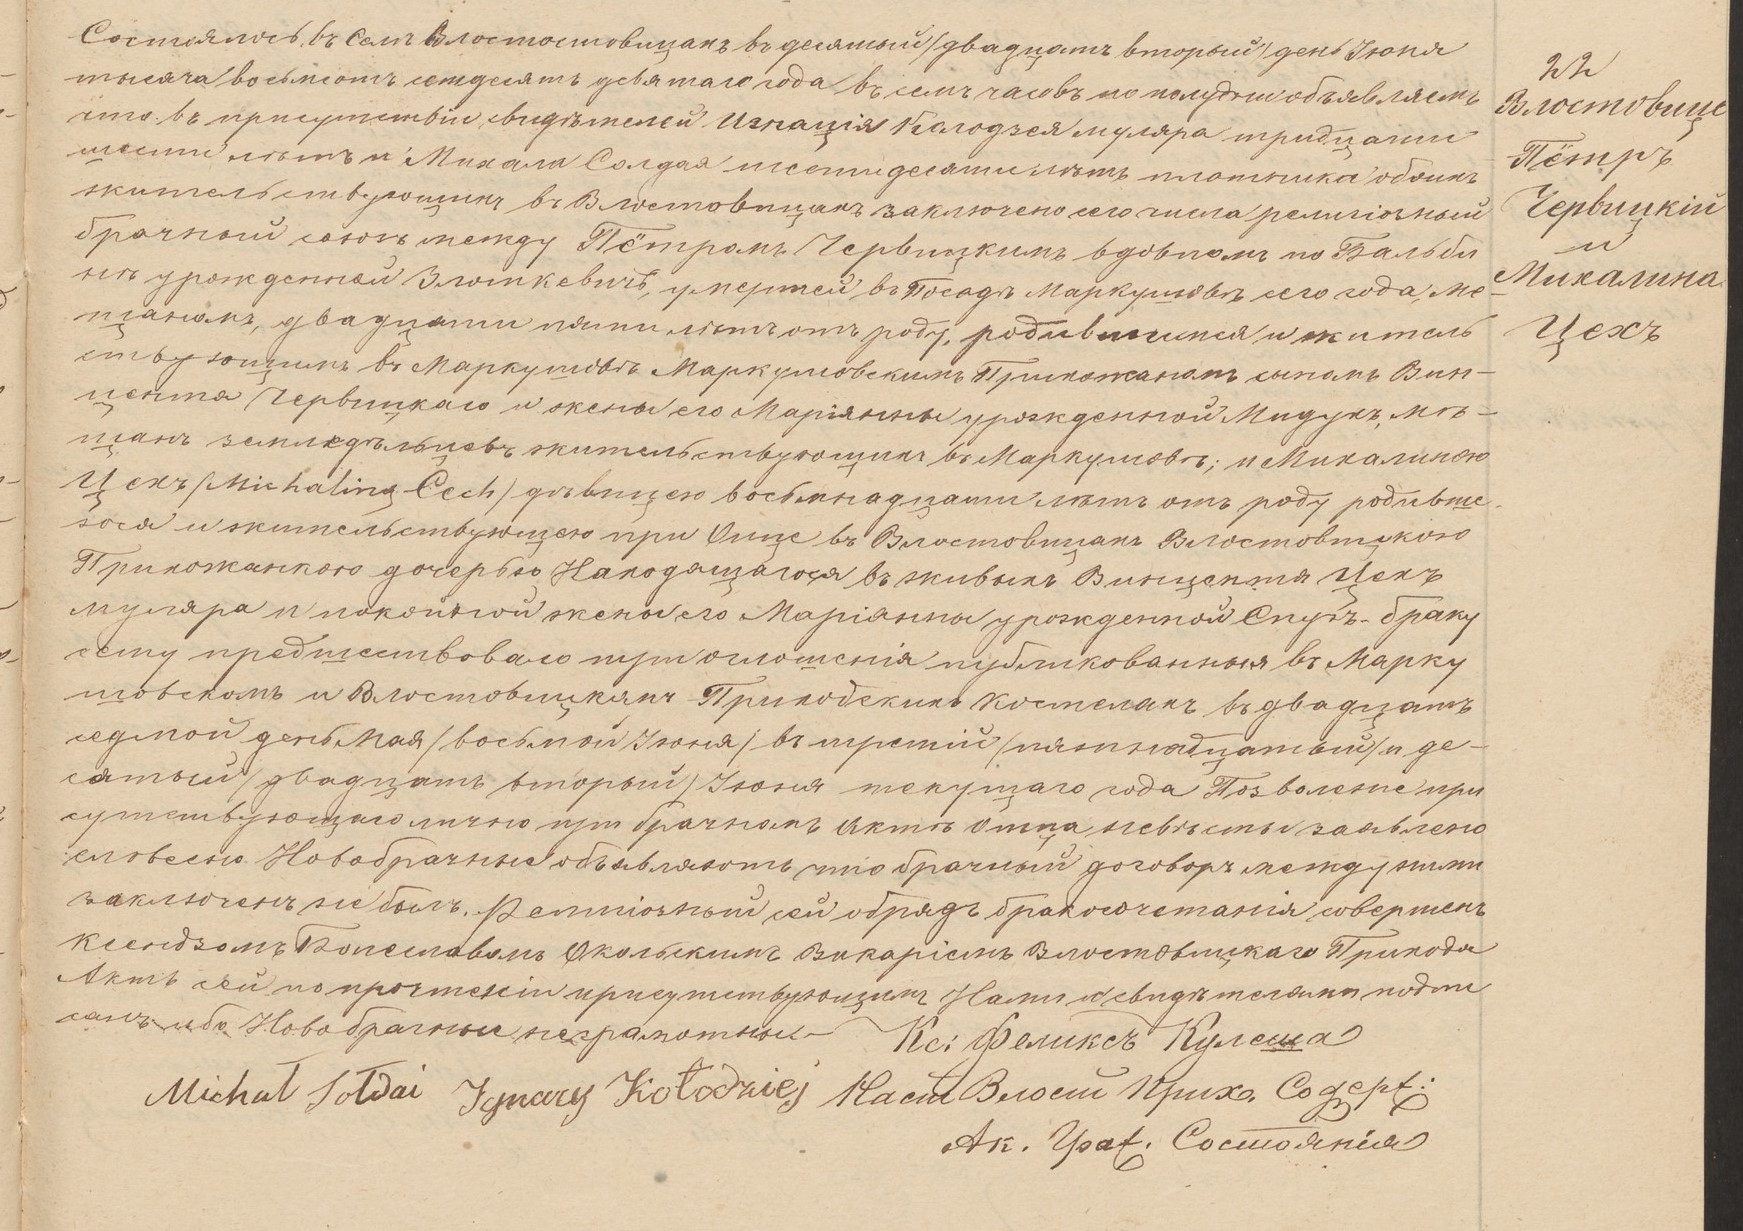 Состоялось въ селѣ Влостостовицахъ въ десятый /двадцать вторый/ день Іюня
тысяча восьмсотъ семдесять девятаго года въ семъ часовъ по полудни объявляемъ
что въ присутствіи свидѣтелей Игнація Колодзея муляра тридцати
шести лѣтъ и Михала Солдая шестидесяти лѣтъ плотника обоихъ
жительствующихъ въ Влостовицахъ заключено сего числа религіозный
брачный союзъ между Пётромъ Червицкимъ вдовцомъ по Бальби
нѣ урожденной Злоткевичъ, умершей въ Посадѣ Маркушовѣ сего года, мѣ-
щаномъ, двадцати пяти лѣтъ отъ роду, родившимся и житель
ствующимъ въ Маркушовѣ Маркушовскимъ Прихожаномъ сыномъ Вин-
цента Червицкаго и жены его Маріянны урожденной Мидухъ, мѣ-
щанъ земледѣльцевъ жительствующихъ въ Маркушовѣ; и Михалиною
Цехъ /Michaliną Cech/ дѣвицею восьмнадцати лѣтъ отъ роду родивше-
юся и жительствующею при Отце въ Влостовицахъ Влостовицкою
Прихожанкою дочерью Находящагося въ живыхъ Винцентя Цехъ
муляра и покойной жены его Маріянны урожденной Спугъ - браку
сему предшествовало три оглошенія публикованныя въ Марку
шовскомъ и Влостовицкимъ Приходскихъ Костелахъ въ двадцать
седмой день Мая /восьмой Іюня/ въ третій /пятнадцатый/ и де-
сятый /двадцать вторый/ Іюня текущаго года Позволеніе при
сутствующаго лично при брачномъ Актѣ Отца невѣсты заявлено
словесно. Новобрачные объявляютъ что брачный договоръ между ними
заключенъ не былъ. Религіозный сей обрядъ бракосочетанія совершенъ
Ксендзомъ Болеславомъ Окольскимъ Викаріемъ Влостовицкаго Прихода
Актъ сей по прочтеніи присутствующимъ Нами и свидѣтелями подпи
санъ ибо Новобрачные неграмотны.
Кс: Феликсъ Кулеша
Michał Sołdai Ignacy Kołodziej Наст Влост Прих. Содерж:
Ак. Граж. Состоянія
22
Влостовице
Пётръ
Червицкій
и
Михалина
Цехъ